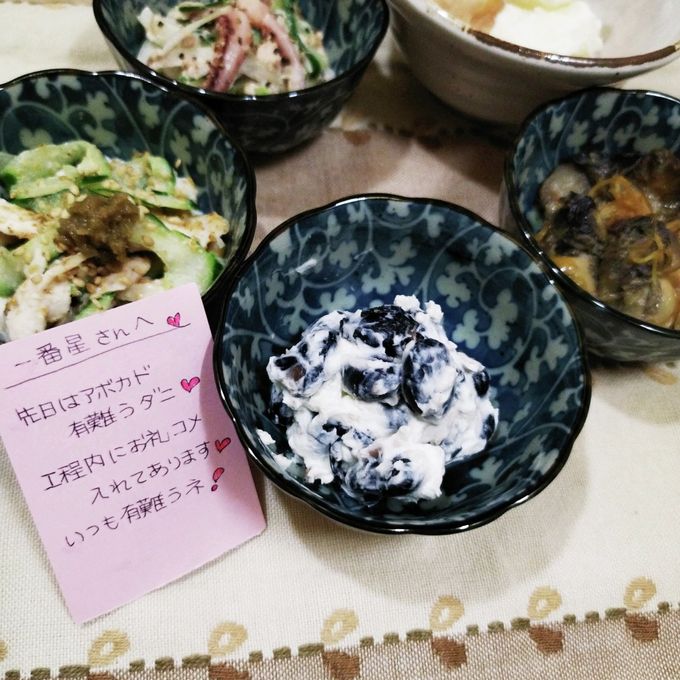 一番星さんへ♥
先日はアボカド
有難うダニ♥
工程内にお礼コメ
入れてあります♥
いつも有難うネ!